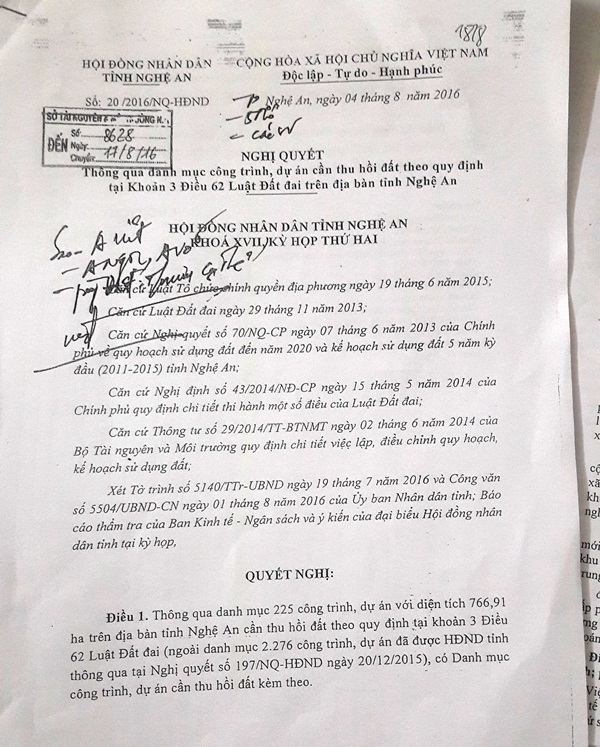 18/8
HỘI ĐỒNG NHÂN DÂN
TỈNH NGHỆ AN
CỘNG HÒA XÃ HỘI CHỦ NGHĨA VIỆT NAM
Độc lập - Tự do - Hạnh phúc
Số: 20/2016/NQ-HĐND
Nghệ An, ngày 04 tháng 8 năm 2016
SỞ TÀI NGUYÊN
ĐẾN
Số: 8628
Ngày: 17/8/16
Chuyển:
NGHỊ QUYẾT
Thông qua danh mục công trình, dự án cần thu hồi đất theo quy định
tại Khoản 3 Điều 62 Luật Đất đai trên địa bàn tỉnh Nghệ An
HỘI ĐỒNG NHÂN DÂN TỈNH NGHỆ AN
KHOÁ XVII, KỲ HỌP THỨ HAI
Căn cứ Luật Tổ chức chính quyền địa phương ngày 19 tháng 6 năm 2015;
Căn cứ Luật Đất đai ngày 29 tháng 11 năm 2013;
Căn cứ Nghị quyết số 70/NQ-CP ngày 07 tháng 6 năm 2013 của Chính
phủ về quy hoạch sử dụng đất đến năm 2020 và kế hoạch sử dụng đất 5 năm kỳ
đầu (2011-2015) tỉnh Nghệ An;
Căn cứ Nghị định số 43/2014/NĐ-CP ngày 15 tháng 5 năm 2014 của
Chính phủ quy định chi tiết thi hành một số điều của Luật Đất đai;
Căn cứ Thông tư số 29/2014/TT-BTNMT ngày 02 tháng 6 năm 2014 của
Bộ Tài nguyên và Môi trường quy định chi tiết việc lập, điều chỉnh quy hoạch,
kế hoạch sử dụng đất;
Xét Tờ trình số 5140/TTr-UBND ngày 19 tháng 7 năm 2016 và Công văn
số 5504/UBND-CN ngày 01 tháng 8 năm 2016 của Ủy ban Nhân dân tỉnh; Báo
cáo thẩm tra của Ban Kinh tế - Ngân sách và ý kiến của đại biểu Hội đồng nhân
dân tỉnh tại kỳ họp,
QUYẾT NGHỊ:
Điều 1. Thông qua danh mục 225 công trình, dự án với diện tích 766,91
ha trên địa bàn tỉnh Nghệ An cần thu hồi đất theo quy định tại khoản 3 Điều
62 Luật Đất đai (ngoài danh mục 2.276 công trình, dự án đã được HĐND tỉnh
thông qua tại Nghị quyết số 197/NQ-HĐND ngày 20/12/2015), có Danh mục
công trình, dự án cần thu hồi đất kèm theo.